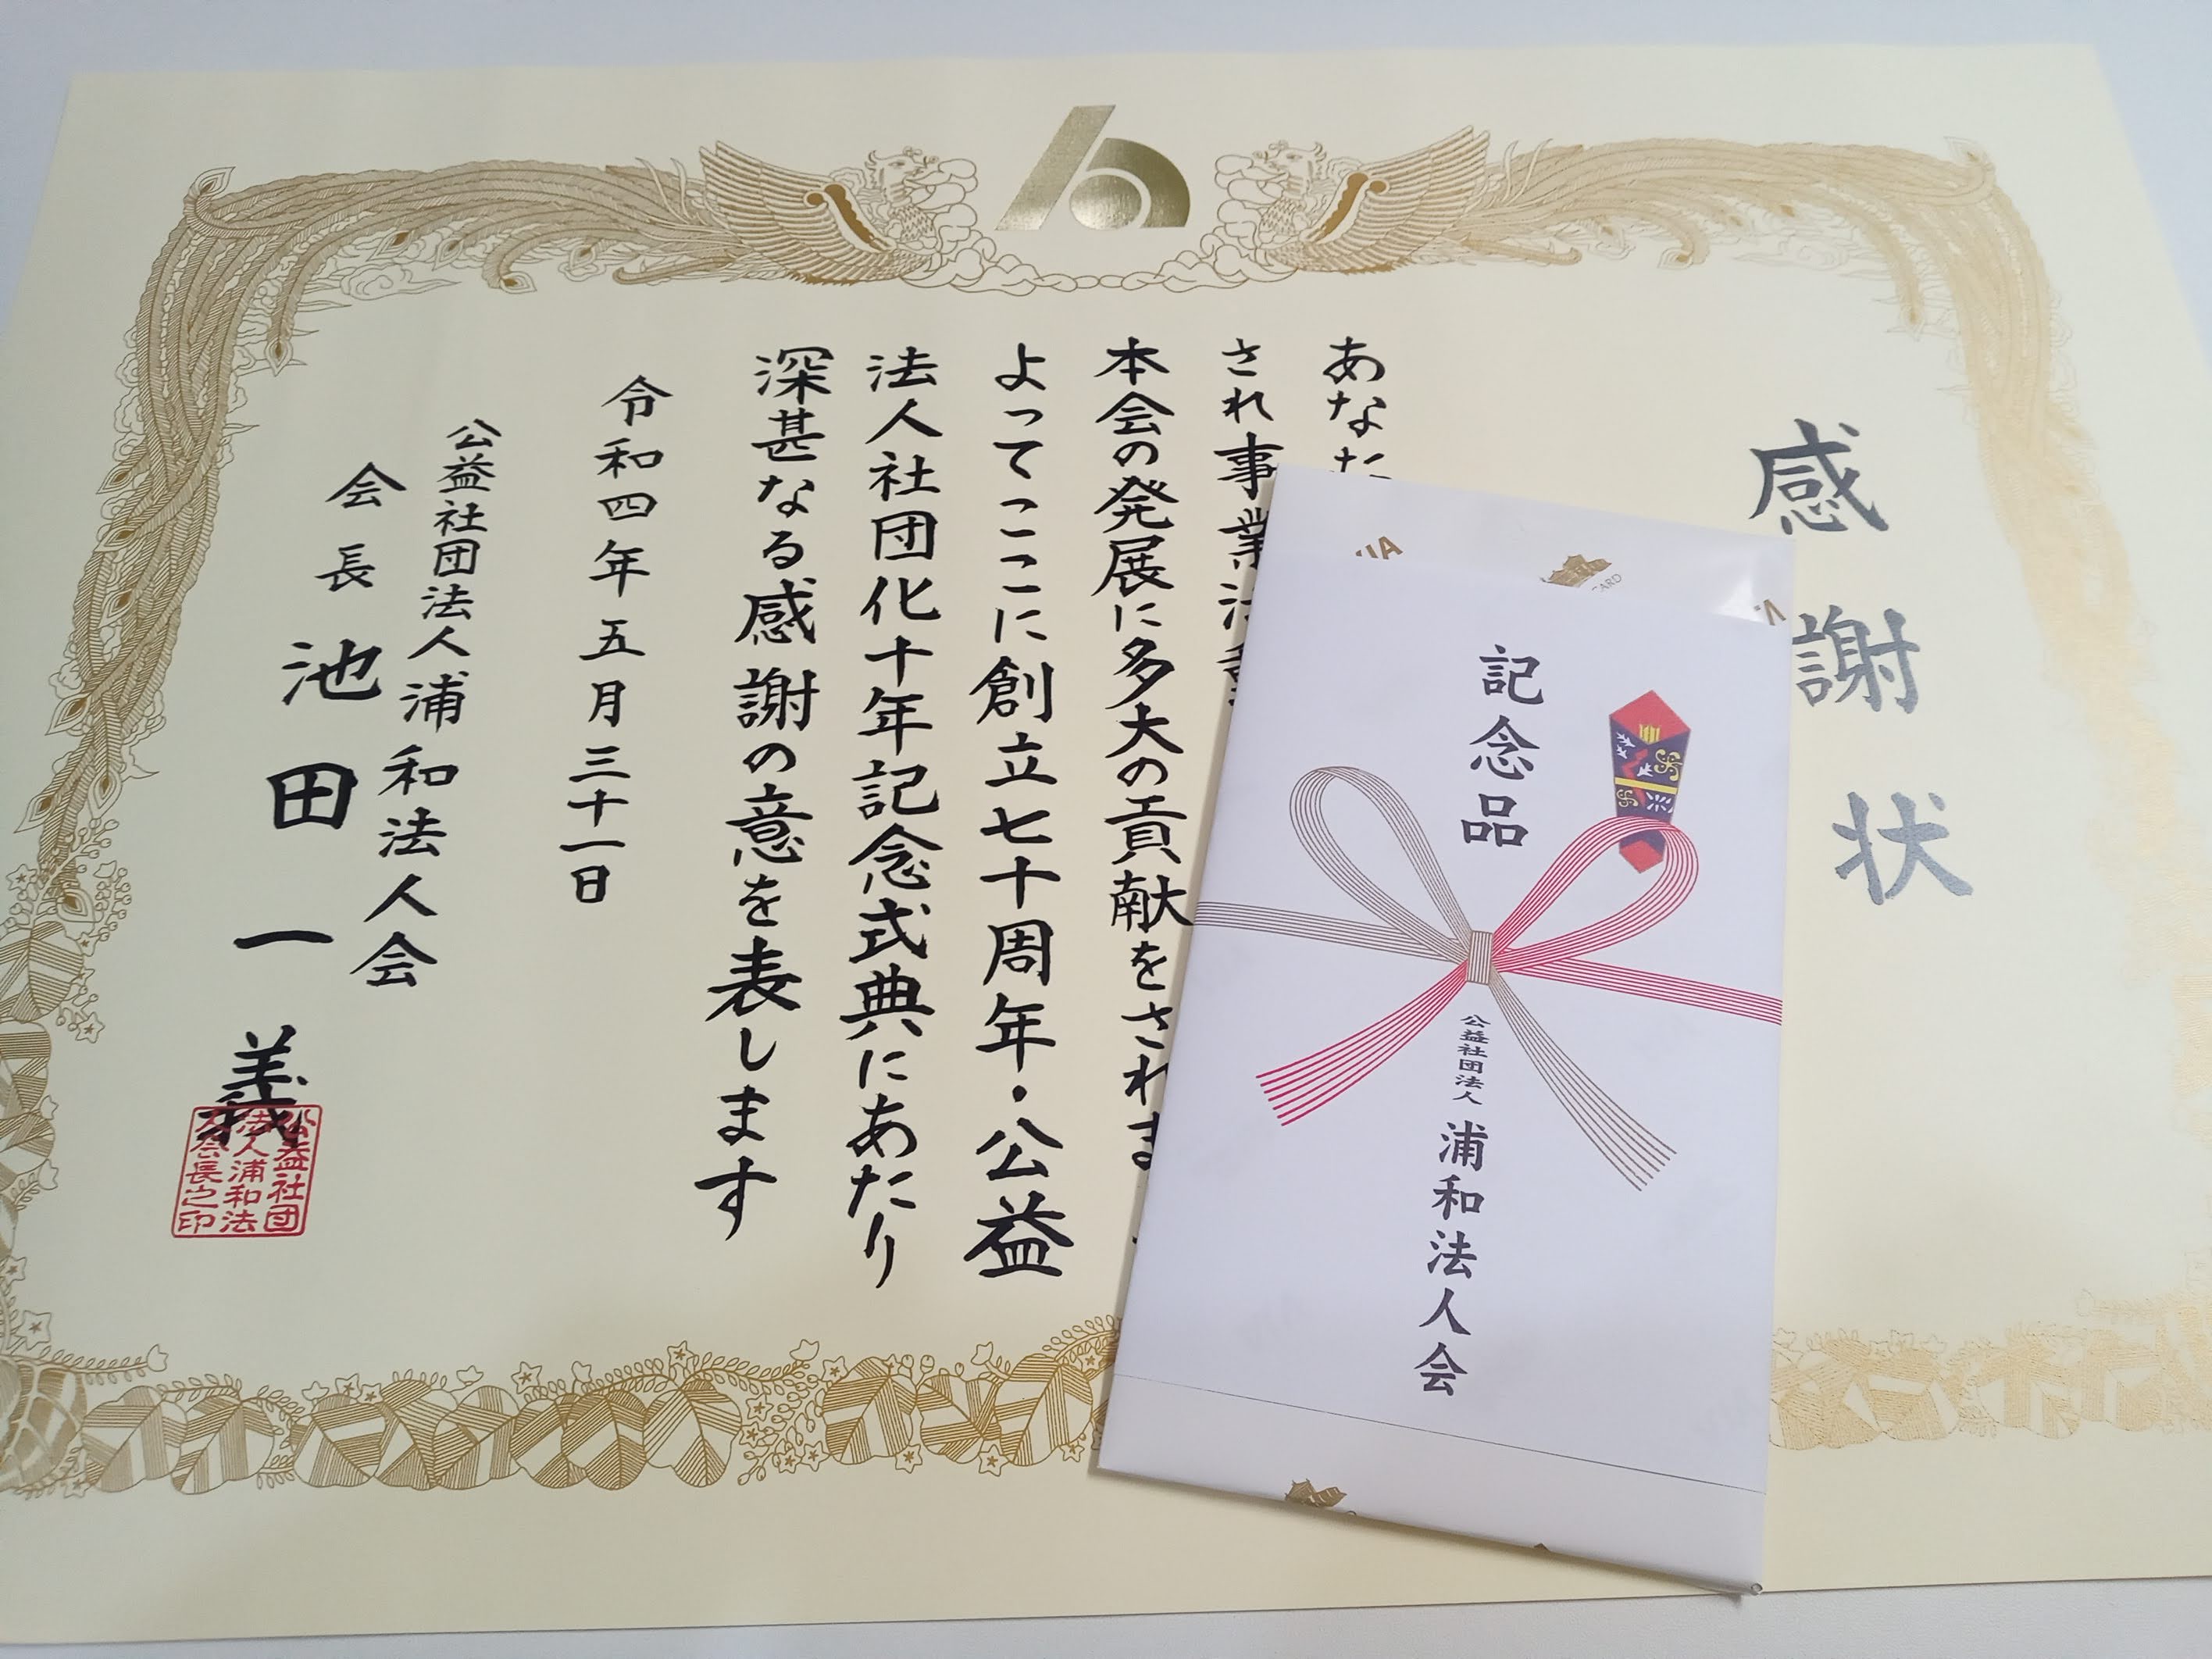 感謝状
あなた
され事業
本会の発展に多大の貢献をされま
よってここに創立七十周年・公益
法人社団化十年記念式典にあたり
深甚なる感謝の意を表します
令和四年五月三十一日
公益社団法人浦和法人会
会長 池田一義
公益社団
法人浦和法
人会長之印
記念品
公益社団法人 浦和法人会